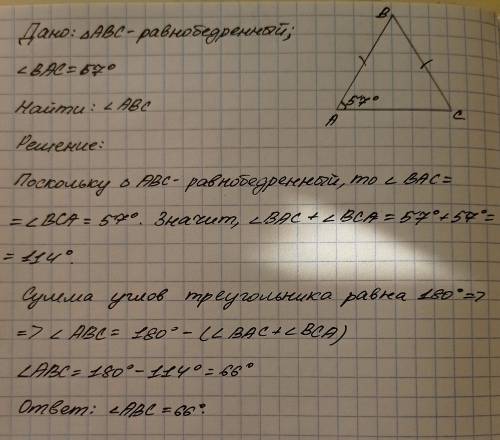 Дано: △ABC - равнобедренный;
∠BAC = 57°
Найти: ∠ABC
B
57°
A
C
Решение:
Поскольку △ ABC - равнобедренный, то ∠BAC =
= ∠BCA = 57°. Значит, ∠BAC + ∠BCA = 57° + 57° =
= 114°.
Сумма углов треугольника равна 180° =>
=> ∠ABC = 180° - (∠BAC + ∠BCA)
∠ABC = 180° - 114° = 66°
Ответ: ∠ABC = 66°.